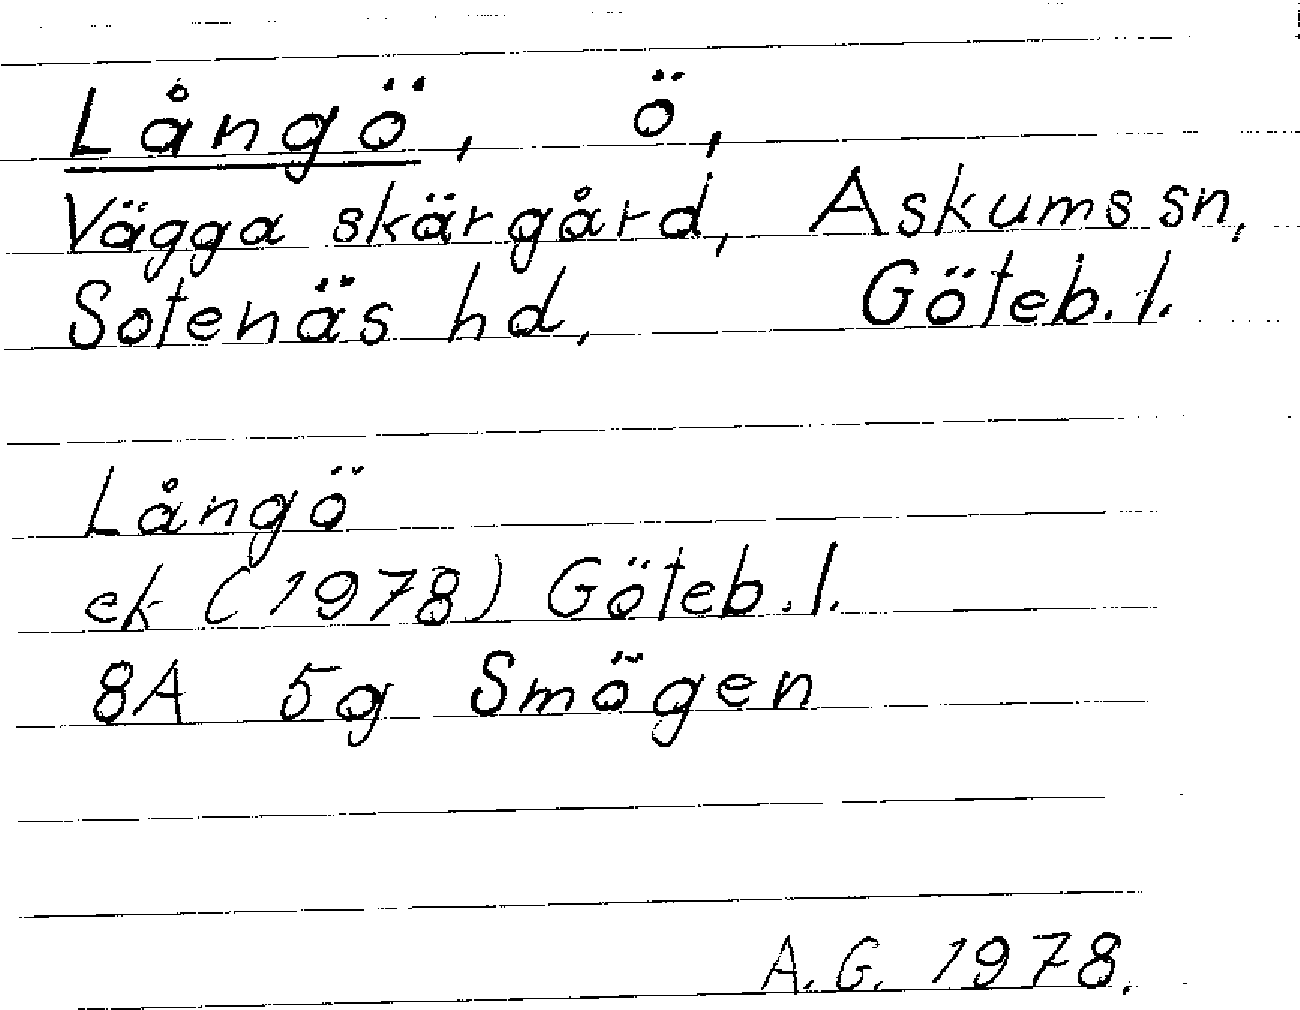 Långö, ö,
Vägga skärgård, Askums sn,
Sotenäs hd, Göteb. l.
Långö
ek (1978) Göteb. l.
8A 5g Smögen
A. G. 1978.